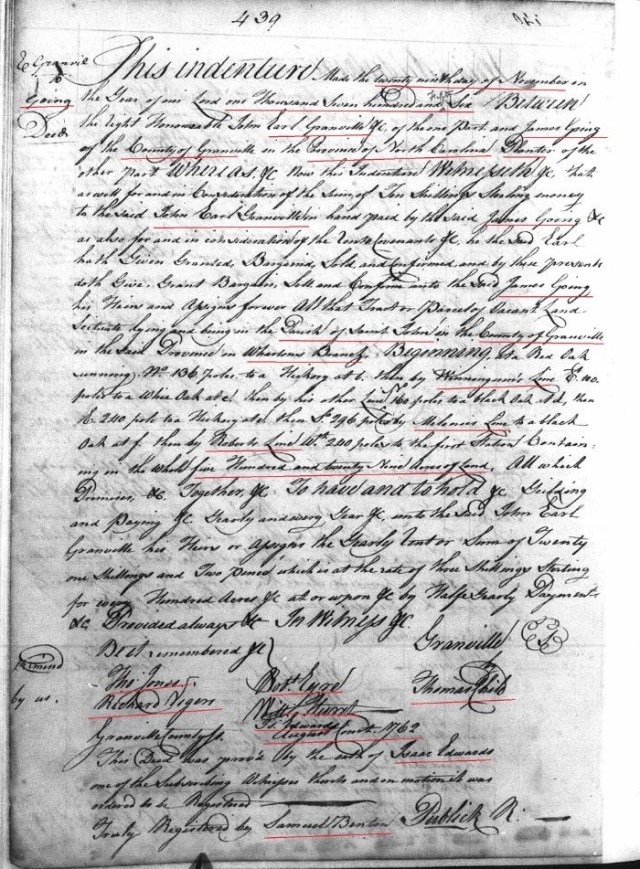 439
E Granvil
to
Going
Deed
This indenture Made the twenty ninth day of November in
the Year of our Lord one Thousand Seven hundred and Sixty Between
the Right Honourable John Earl Granville &c of the one Part and James Going
of the County of Granville in the Province of North Carolina Planter of the
other Part Whereas, &c Now this Indenture Witnesseth &c that
as well for and in Consideration of the Sum of Ten Shillings Sterling money
to the said John Earl Granville in hand paid by the said James Going &c
as also for and in consideration of the Rents Covenants &c, he the Said Earl
hath Given Granted, Bargained, Sold, and Confirmed and by these presents
doth Give, Grant Bargain, Sell and Confirm unto the Said James Going
his Heirs and Assigns forever All that Tract or Parcel of Vacant Land
Situate lying and being in the Parish of Saint John in the County of Granville
in the Said Province on Whartons Branch Beginning at a Red Oak
running No. 136 poles to a Hickory at b. then by Line Et. 110.
poles to a White Oak at c then by his other Line No. 160 poles to a black Oak at d, then
E. 240 pole to a Hickory at e then So. 296 poles by Line to a black
Oak at f. then by Roberts Line Wt. 200 poles to the first Station Contain-
ing in the Whole five Hundred and twenty Nine Acres of Land, All which
Premises, &c. Together, &c To have and to hold &c Yielding
and Paying &c Yearly and every Year &c, unto the Said John Earl
Granville his Heirs or Assigns the Yearly Rent or Sum of Twenty
one Shillings and Two pence which is at the rate of three Shillings Sterling
for every Hundred Acres &c at or upon &c by Halfe Yearly Payments
&c Provided always &c In Witness &c
Be it remembered &c Granville
by us. Tho Jones Robt. Eyre Thomas Child
Richard Vigers
Granville County Ss. August Court 1762
This Deed was prov'd by the oath of Isaac Edwards
one of the Subscribing Witnesses thereto and on motion it was
ordered to be Registered
Truly Registered by Samuel Benton Publick R: